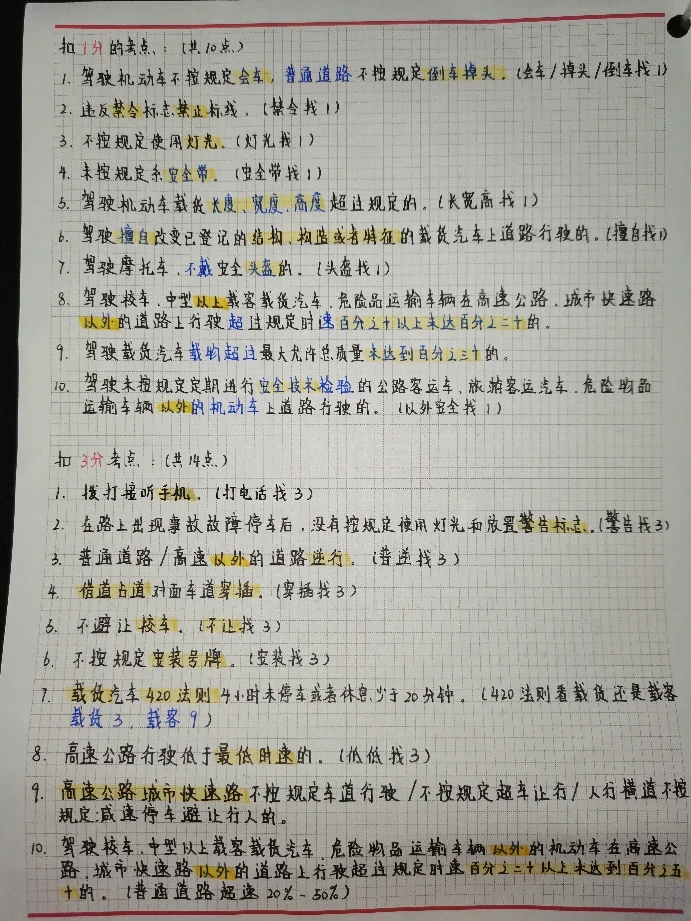 扣1分的考点：(共10点)
1. 驾驶机动车不按规定会车，普通道路不按规定倒车掉头。(会车/掉头/倒车找1)
2. 违反禁令标志禁止标线。(禁令找1)
3. 不按规定使用灯光。(灯光找1)
4. 未按规定系安全带。(安全带找1)
5. 驾驶机动车载货长度、宽度、高度超过规定的。(长宽高找1)
6. 驾驶擅自改变已登记的结构、构造或者特征的载货汽车上道路行驶的。(擅自找1)
7. 驾驶摩托车，不戴安全头盔的。(头盔找1)
8. 驾驶校车、中型以上载客载货汽车、危险品运输车辆在高速公路、城市快速路
以外的道路上行驶超过规定时速百分之十以上未达百分之二十的。
9. 驾驶载货汽车载物超过最大允许总质量未达到百分之三十的。
10. 驾驶未按规定定期进行安全技术检验的公路客运车、旅游客运汽车、危险物品
运输车辆以外的机动车上道路行驶的。(以外安全找1)
扣3分考点：(共14点)
1. 拨打接听手机。(打电话找3)
2. 在路上出现事故故障停车后，没有按规定使用灯光和放置警告标志。(警告找3)
3. 普通道路/高速以外的道路逆行。(普逆找3)
4. 借道占道对面车道穿插。(穿插找3)
5. 不避让校车。(不让找3)
6. 不按规定安装号牌。(安装找3)
7. 载货汽车420法则4小时未停车或者休息少于20分钟。(420法则看载货还是载客
载货3、载客9)
8. 高速公路行驶低于最低时速的。(低低找3)
9. 高速公路城市快速路不按规定车道行驶/不按规定超车让行/人行横道不按
规定:减速停车避让行人的。
10. 驾驶校车、中型以上载客载货汽车、危险物品运输车辆以外的机动车在高速公
路、城市快速路以外的道路上行驶超过规定时速百分之二十以上未达到百分之五
十的。(普通道路超速20%-50%)